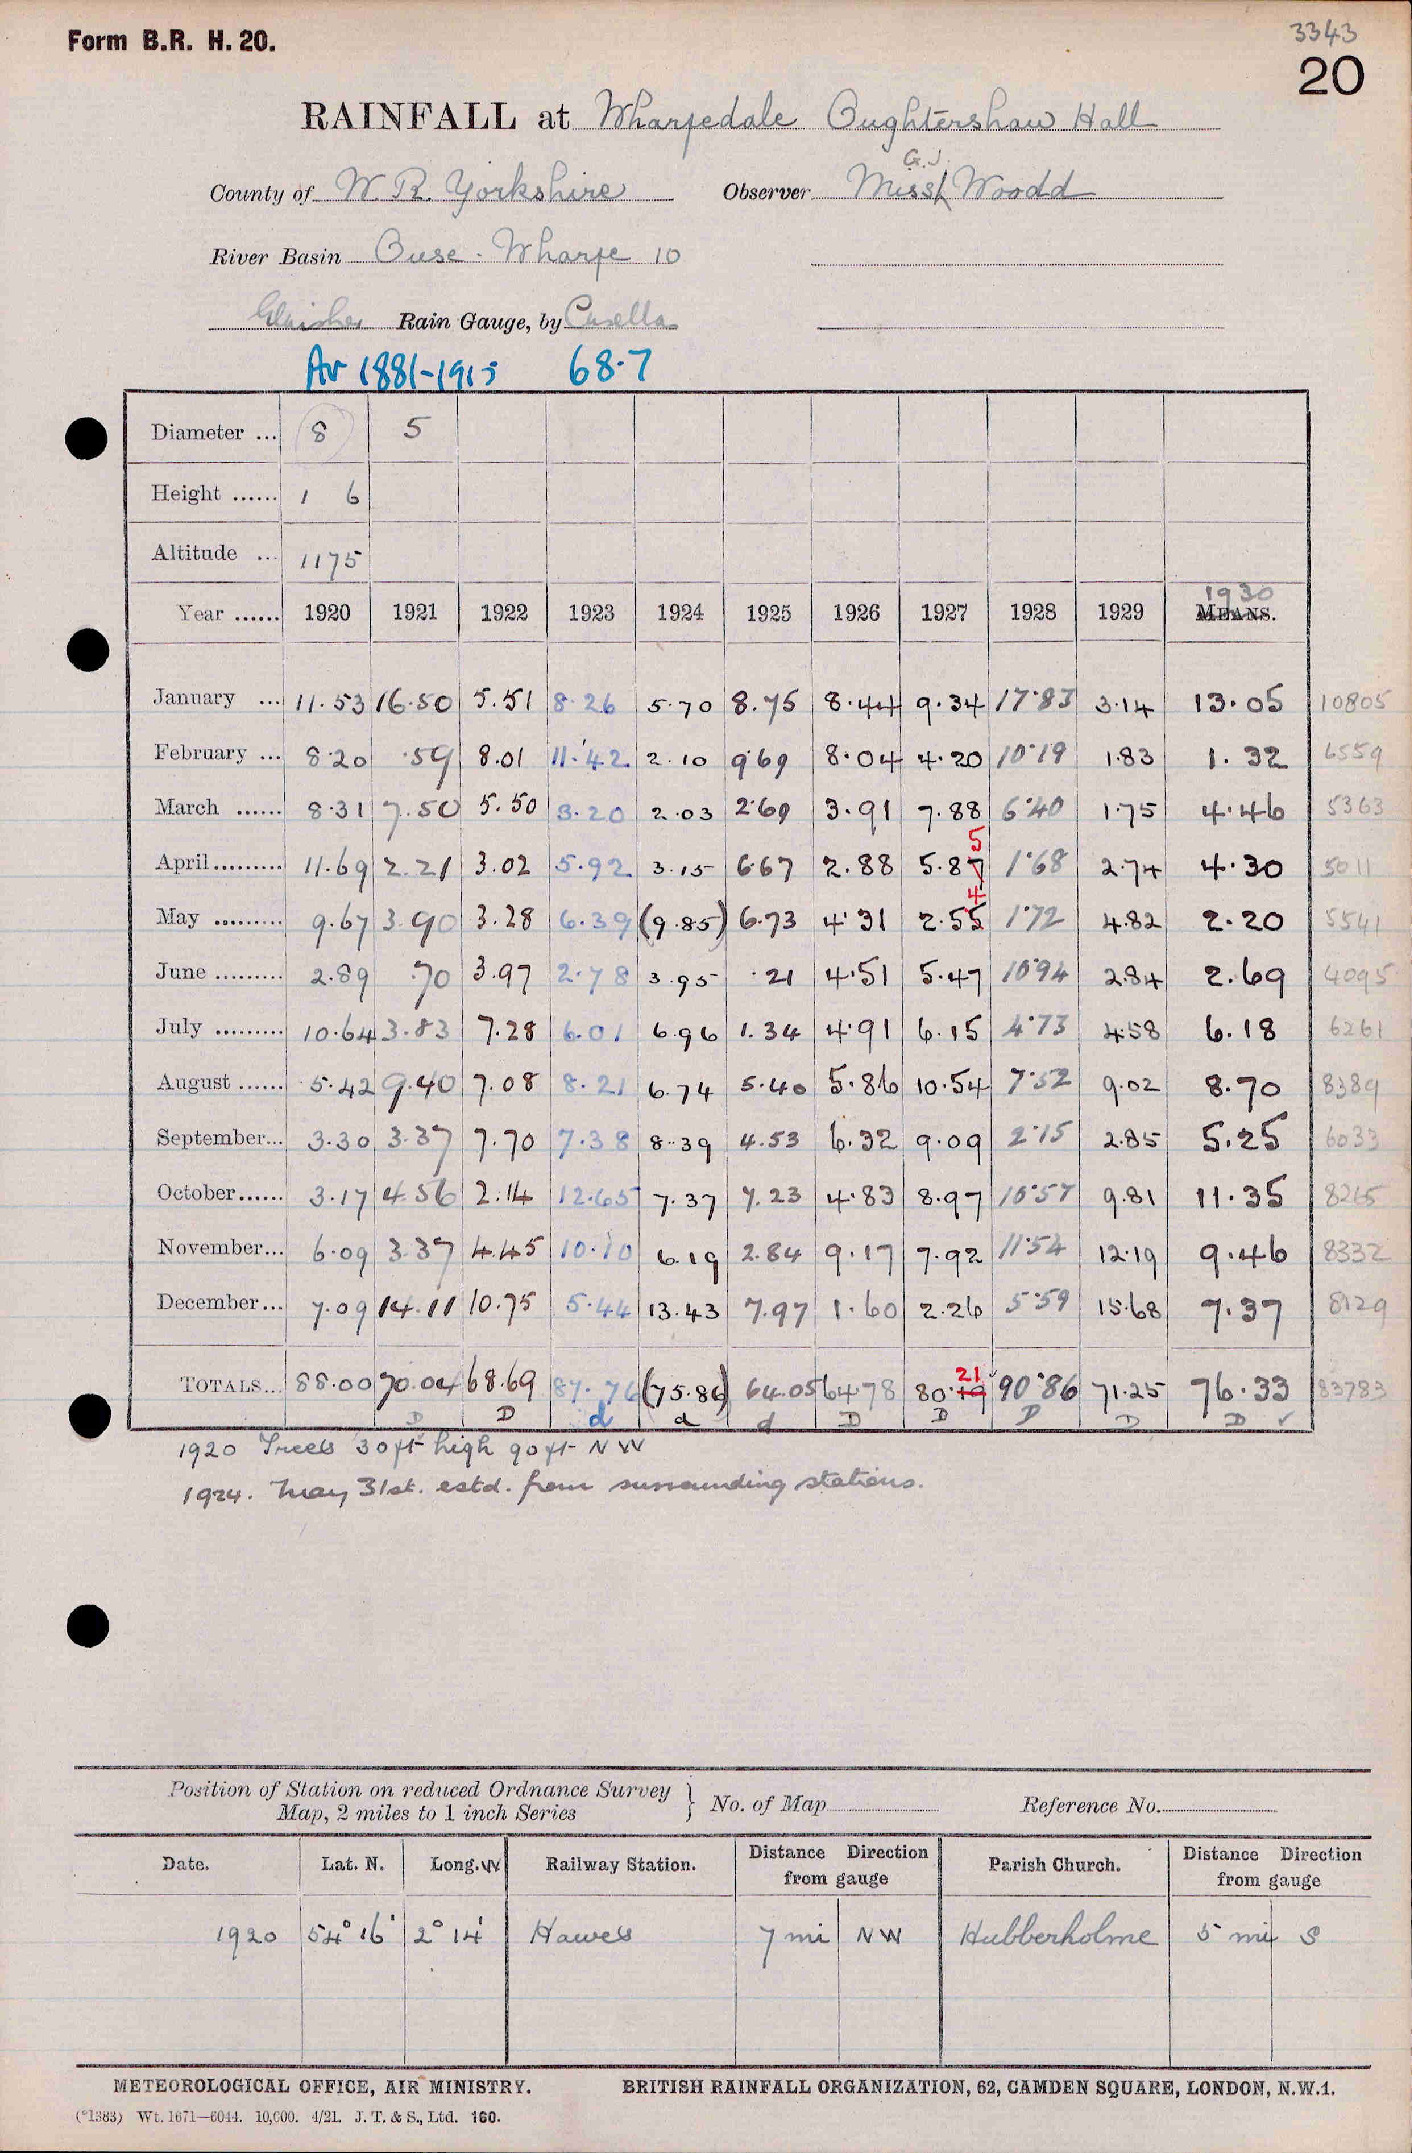 Form B.R. H. 20.
3343
20
RAINFALL at Wharfedale Oughtershaw Hall
County of W. R. Yorkshire Observer Miss G.J. Woodd
River Basin Ouse - Wharfe 10
Glaisher Rain Gauge, by Casella
Av 1881-1915 68.7
Diameter ... 8 5
Height ...... 1 6
Altitude ... 1175
Year ...... 1920 1921 1922 1923 1924 1925 1926 1927 1928 1929 MEANS. 1930
January ... 11.53 16.50 5.51 8.26 5.70 8.75 8.44 9.34 17.83 3.14 13.05 10805
February ... 8.20 .59 8.01 11.42 2.10 9.69 8.04 4.20 10.19 1.83 1.32 6559
March ...... 8.31 7.50 5.50 3.20 2.03 2.69 3.91 7.88 6.40 1.75 4.46 5363
April ......... 11.69 2.21 3.02 5.92 3.15 6.67 2.88 5.87 5 1.68 2.74 4.30 5011
May ......... 9.67 3.90 3.28 6.39 (9.85) 6.73 4.31 2.55 4 1.72 4.82 2.20 5541
June ......... 2.89 .70 3.97 2.78 3.95 .21 4.51 5.47 10.94 2.84 2.69 4095
July ......... 10.64 3.83 7.28 6.01 6.96 1.34 4.91 6.15 4.73 4.58 6.18 6261
August ...... 5.42 9.40 7.08 8.21 6.74 5.40 5.86 10.54 7.52 9.02 8.70 8389
September... 3.30 3.37 7.70 7.38 8.39 4.53 6.32 9.09 2.15 2.85 5.25 6033
October...... 3.17 4.56 2.14 12.65 7.37 7.23 4.83 8.97 10.57 9.81 11.35 8265
November... 6.09 3.37 4.45 10.10 6.19 2.84 9.17 7.92 11.54 12.19 9.46 8332
December... 7.09 14.11 10.75 5.44 13.43 7.97 1.60 2.26 5.59 15.68 7.37 8129
TOTALS... 88.00 70.04 68.69 87.76 (75.86) 64.05 64.78 80.19 21 90.86 71.25 76.33 83783
D D d d d D D D D D ✓
1920 Trees 30ft high 90ft NW
1924. May 31st. estd. from surrounding stations.
Position of Station on reduced Ordnance Survey
Map, 2 miles to 1 inch Series } No. of Map Reference No.
Date. Lat. N. Long. W Railway Station. Distance Direction from gauge Parish Church. Distance Direction from gauge
1920 54° 16' 2° 14' Hawes 7 mi NW Hubberholme 5 mi S
METEOROLOGICAL OFFICE, AIR MINISTRY. BRITISH RAINFALL ORGANIZATION, 62, CAMDEN SQUARE, LONDON, N.W.1.
(*1383) Wt. 1671—6044. 10,000. 4/21. J. T. & S., Ltd. 160.